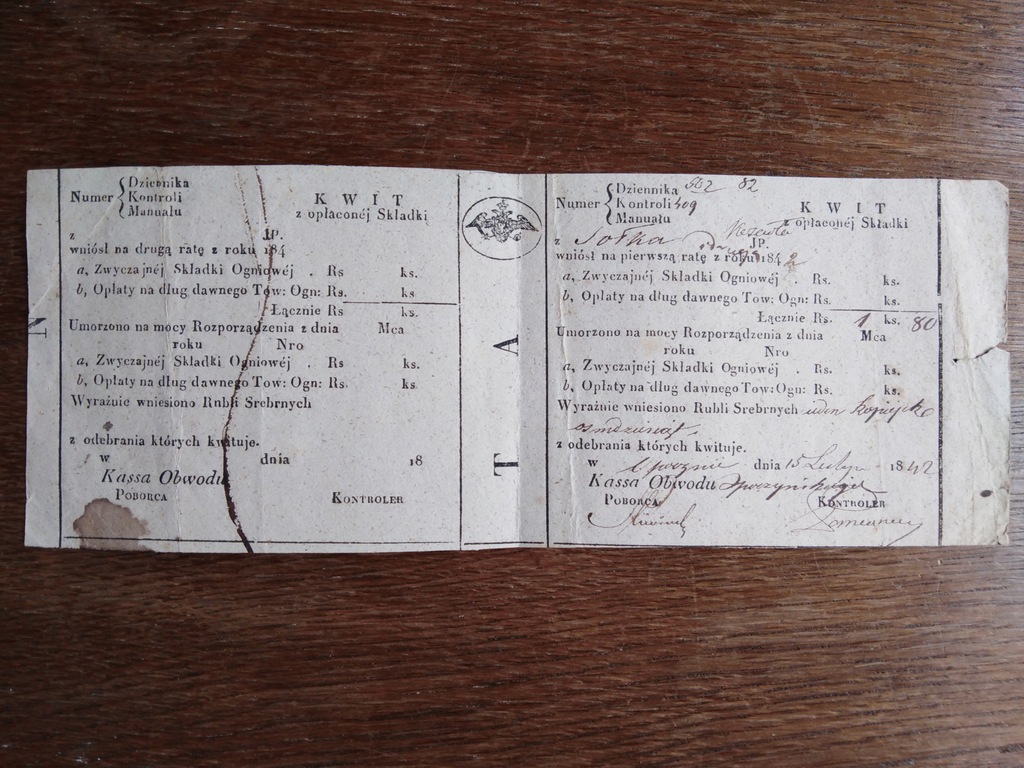 Numer { Dziennika
Kontroli
Manuału
K W I T
z opłaconéj Składki
z JP.
wniósł na drugą ratę z roku 184
a, Zwyczajnéj Składki Ogniowéj . Rs ks.
b, Opłaty na dług dawnego Tow: Ogn: Rs. ks
Łącznie Rs ks.
Umorzono na mocy Rozporządzenia z dnia Mca
roku Nro
a, Zwyczajnéj Składki Ogniowéj . Rs ks.
b, Opłaty na dług dawnego Tow: Ogn: Rs. ks
Wyraźnie wniesiono Rubli Srebrnych
z odebrania których kwituje.
w dnia 18
Kassa Obwodu
POBORCA KONTROLER
N
T A
Numer { Dziennika 82
Kontroli 409
Manuału
K W I T
z opłaconéj Składki
z JP.
wniósł na pierwszą ratę z roku 1842
a, Zwyczajnéj Składki Ogniowéj . Rs. ks.
b, Opłaty na dług dawnego Tow: Ogn: Rs. ks.
Łącznie Rs. 1 ks. 80
Umorzono na mocy Rozporządzenia z dnia Mca
roku Nro
a, Zwyczajnéj Składki Ogniowéj . Rs. ks.
b, Opłaty na dług dawnego Tow: Ogn: Rs. ks.
Wyraźnie wniesiono Rubli Srebrnych ieden kopiejek
osmdziesiąt.
z odebrania których kwituje.
w Opocznie dnia 15 Lutego 1842
Kassa Obwodu Opoczyńskiego
POBORCA KONTROLER